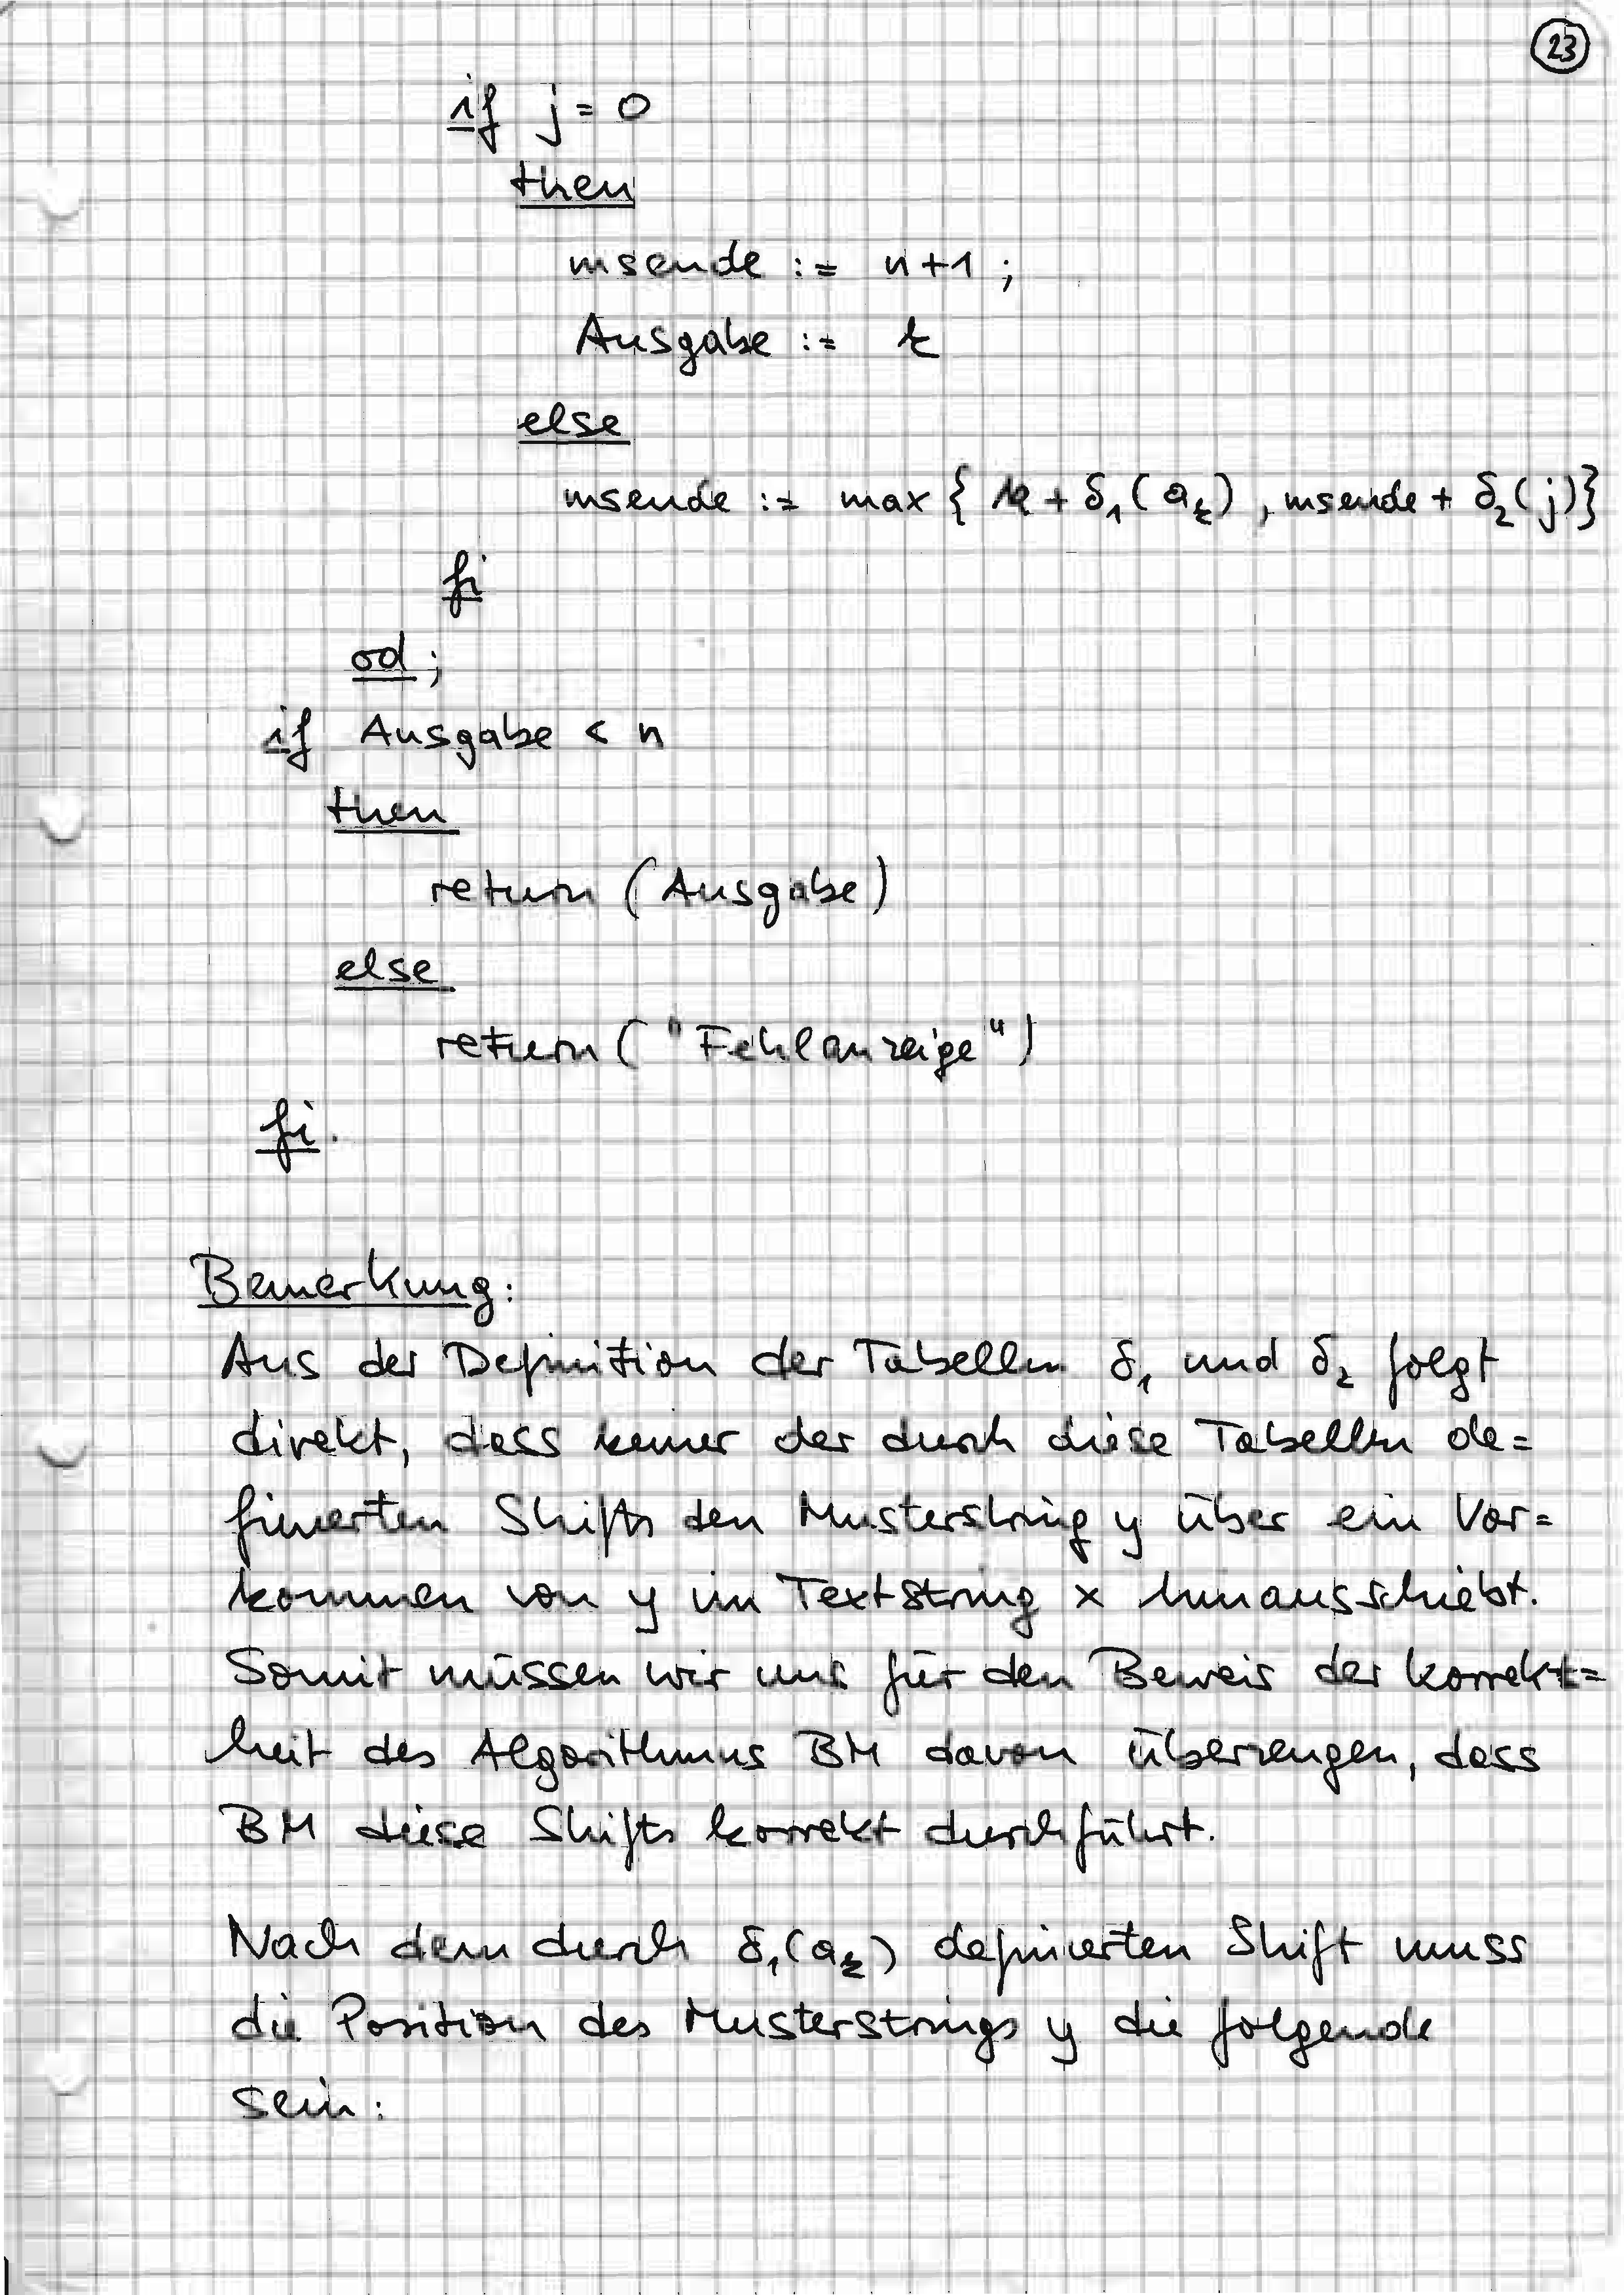 23
if j = 0
then
msende := n+1 ;
Ausgabe := k
else
msende := max { k + δ₁(aₖ), msende + δ₂(j)}
fi
od ;
if Ausgabe < n
then
return (Ausgabe)
else
return ("Fehlanzeige")
fi.
Bemerkung:
Aus der Definition der Tabellen δ₁ und δ₂ folgt
direkt, dass keiner der durch diese Tabellen de=
finierten Shifts den Musterstring y über ein Vor=
kommen von y im Textstring x hinausschiebt.
Somit müssen wir uns für den Beweis der Korrekt=
heit des Algorithmus BM davon überzeugen, dass
BM diese Shifts korrekt durchführt.
Nach dem durch δ₁(aₖ) definierten Shift muss
die Position des Musterstrings y die folgende
sein: